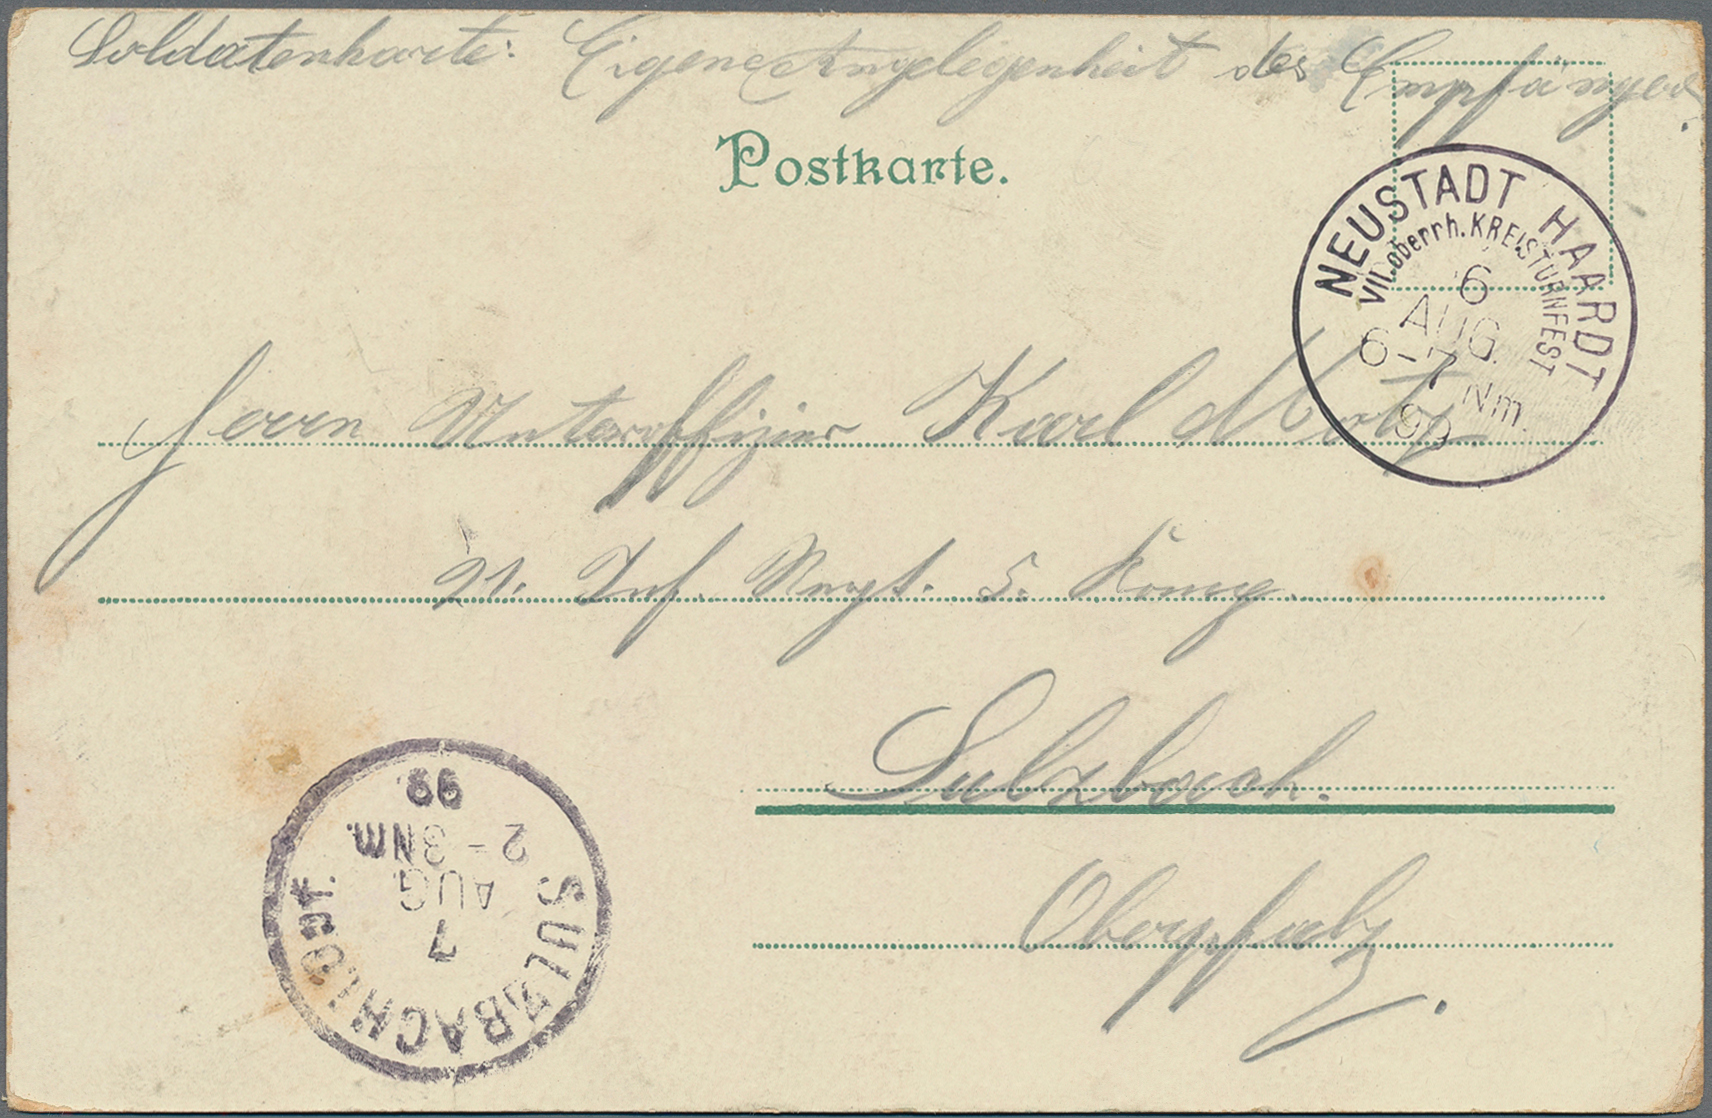 Soldatenkarte: Eigene Angelegenheit des Empfängers.
Postkarte.
NEUSTADT HAARDT
VII. oberrh. KREISTURNFEST
6
AUG.
6-7 Nm.
99
Herrn Unteroffizier Karl
21. Inf. Regt. 5. Komp.
Sulzbach.
Oberpfalz.
SULZBACH I.OPF.
7
AUG.
2-3 Nm.
99